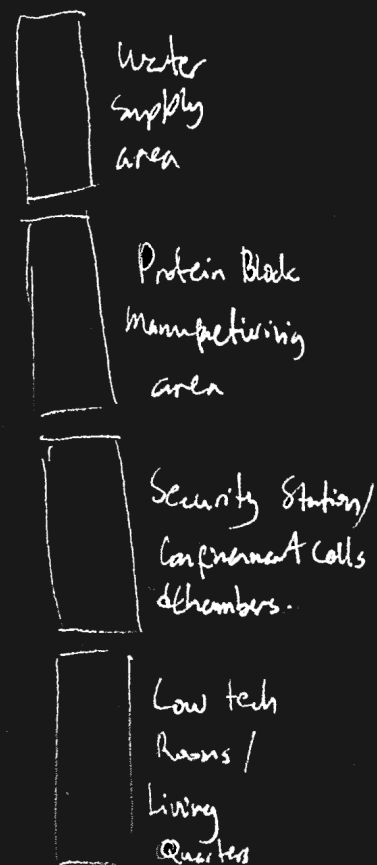 Water
Supply
area
Protein Block
Manufacturing
area
Security Station/
Confinement Cells
& Chambers.
Low tech
Rooms/
Living
Quarters